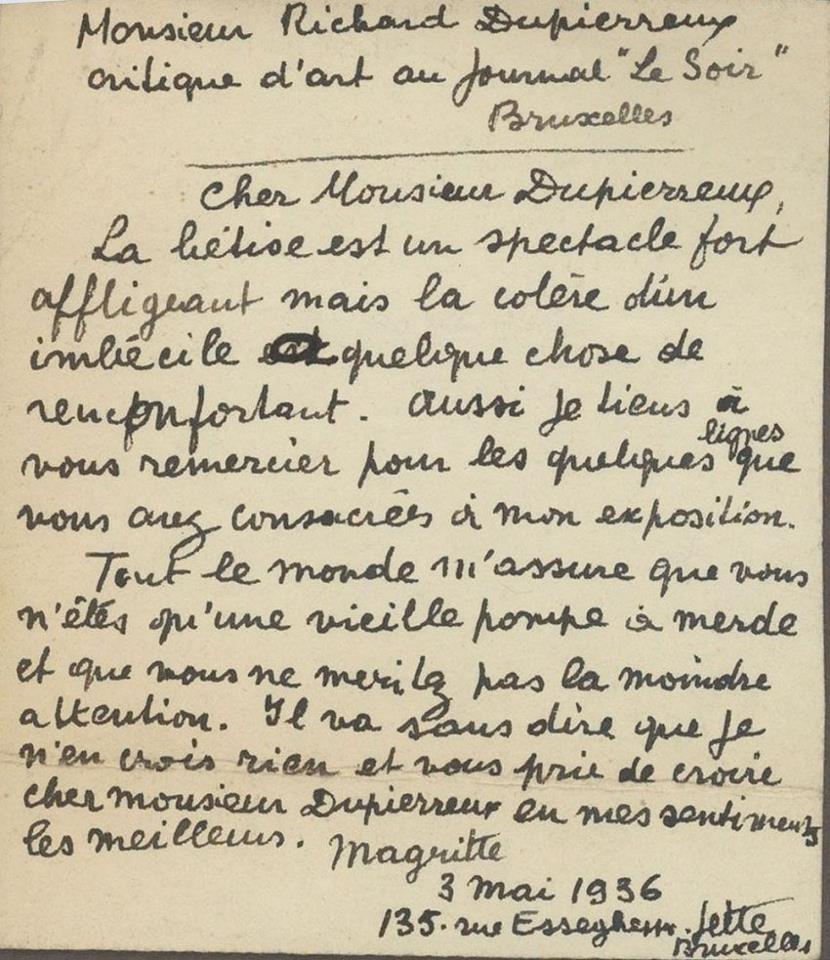 Monsieur Richard Dupierreux
critique d'art au Journal "Le Soir"
Bruxelles
Cher Monsieur Dupierreux,
La bêtise est un spectacle fort
affligeant mais la colère d'un
imbécile quelque chose de
reuconfortant. Aussi je tiens à
lignes
vous remercier pour les quelques que
vous avez consacrées à mon exposition.
Tout le monde m'assure que vous
n'êtes qu'une vieille pompe à merde
et que vous ne meritez pas la moindre
attention. Il va sans dire que je
n'en crois rien et vous prie de croire
cher monsieur Dupierreux en mes sentiments
les meilleurs. Magritte
3 Mai 1936
135. rue Esseghem. Jette
Bruxelles